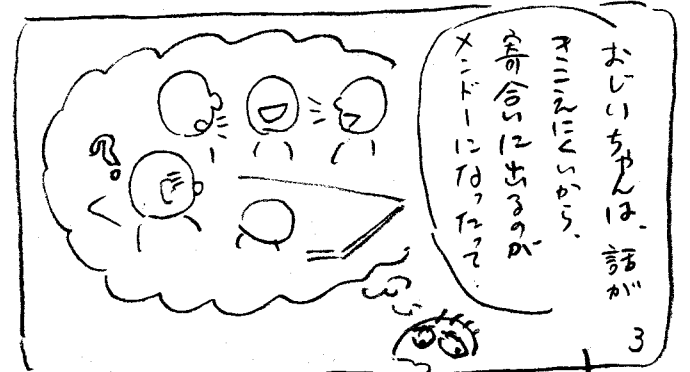 おじいちゃんは、話が
きこえにくいから、
寄合いに出るのが
メンドーになったって
?
3